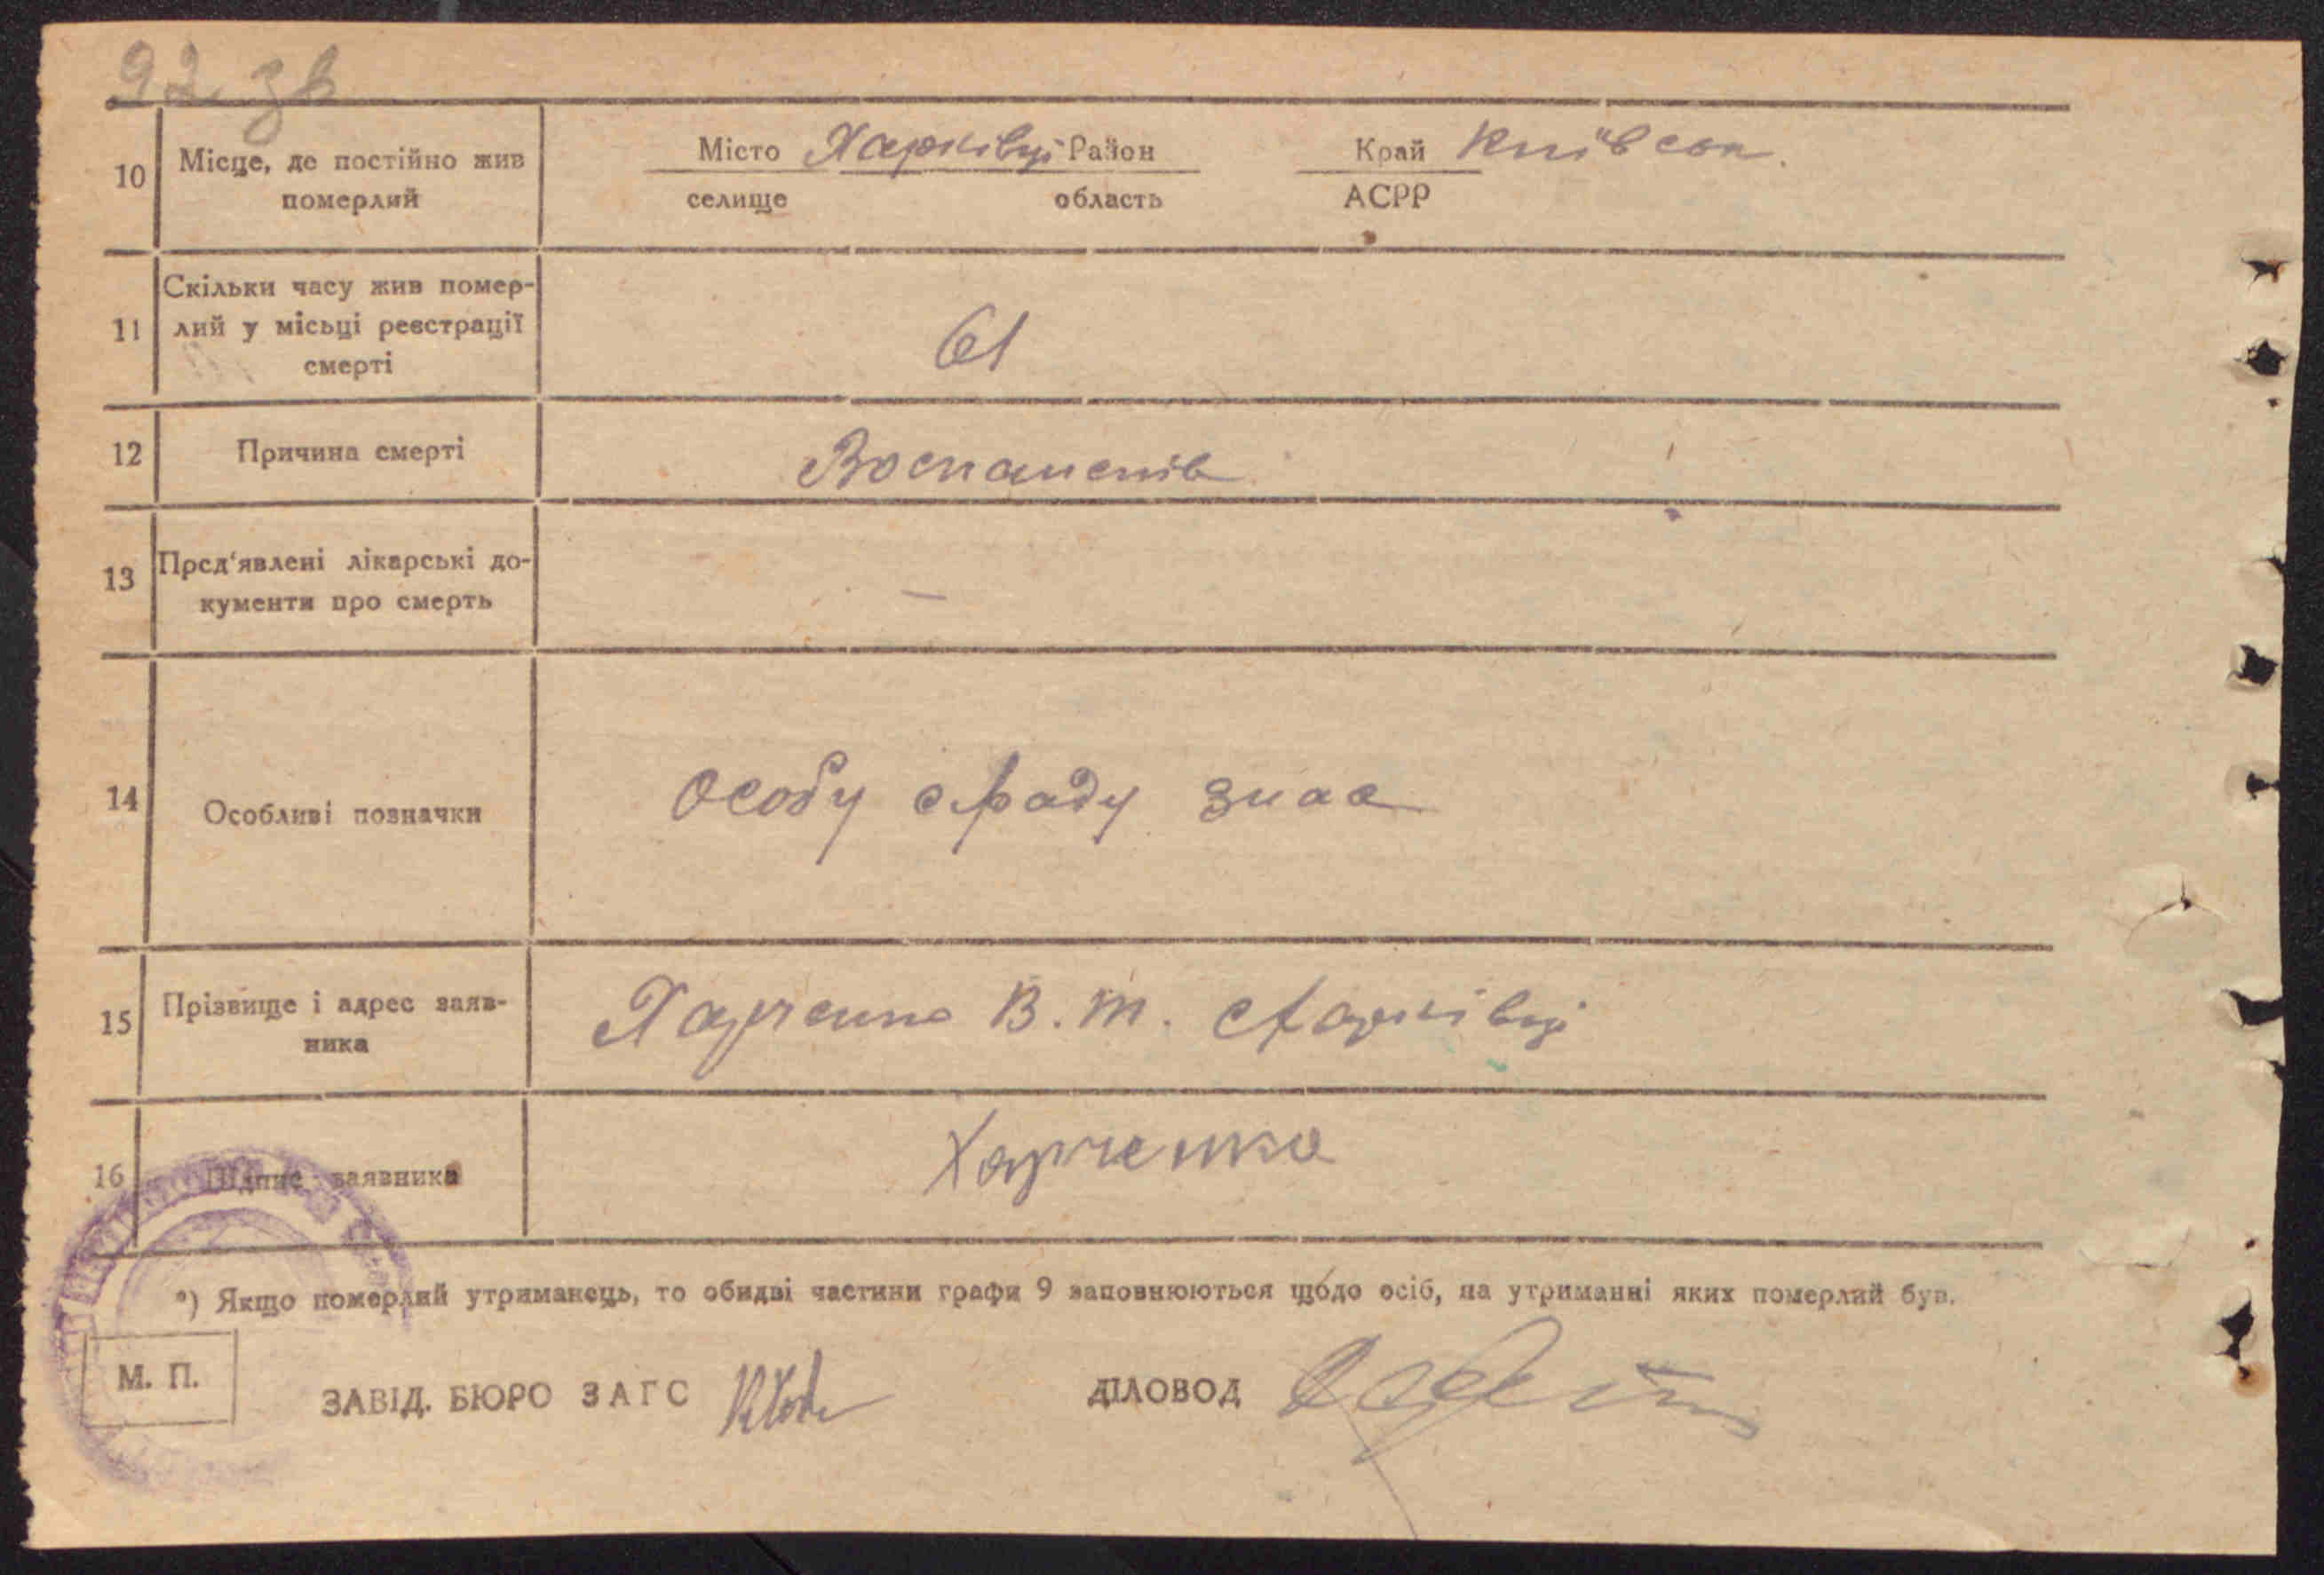 92 зв
10 Місце, де постійно жив померлий
Місто Харківці Район Край Київськ.
селище область АСРР
11 Скільки часу жив помер-
лий у місьці реєстрації
смерті
61
12 Причина смерті
Воспаленів
13 Пред'явлені лікарські до-
кументи про смерть
—
14 Особливі позначки
Особу с/раду знає
15 Прізвище і адрес заяв-
ника
Харченко В. т. с Харківці
16 Підпис заявника
Харченко
*) Якщо померлий утриманець, то обидві частини графи 9 заповнюються щодо осіб, на утриманні яких померлий був.
М. П.
ЗАВІД. БЮРО ЗАГС
ДІЛОВОД